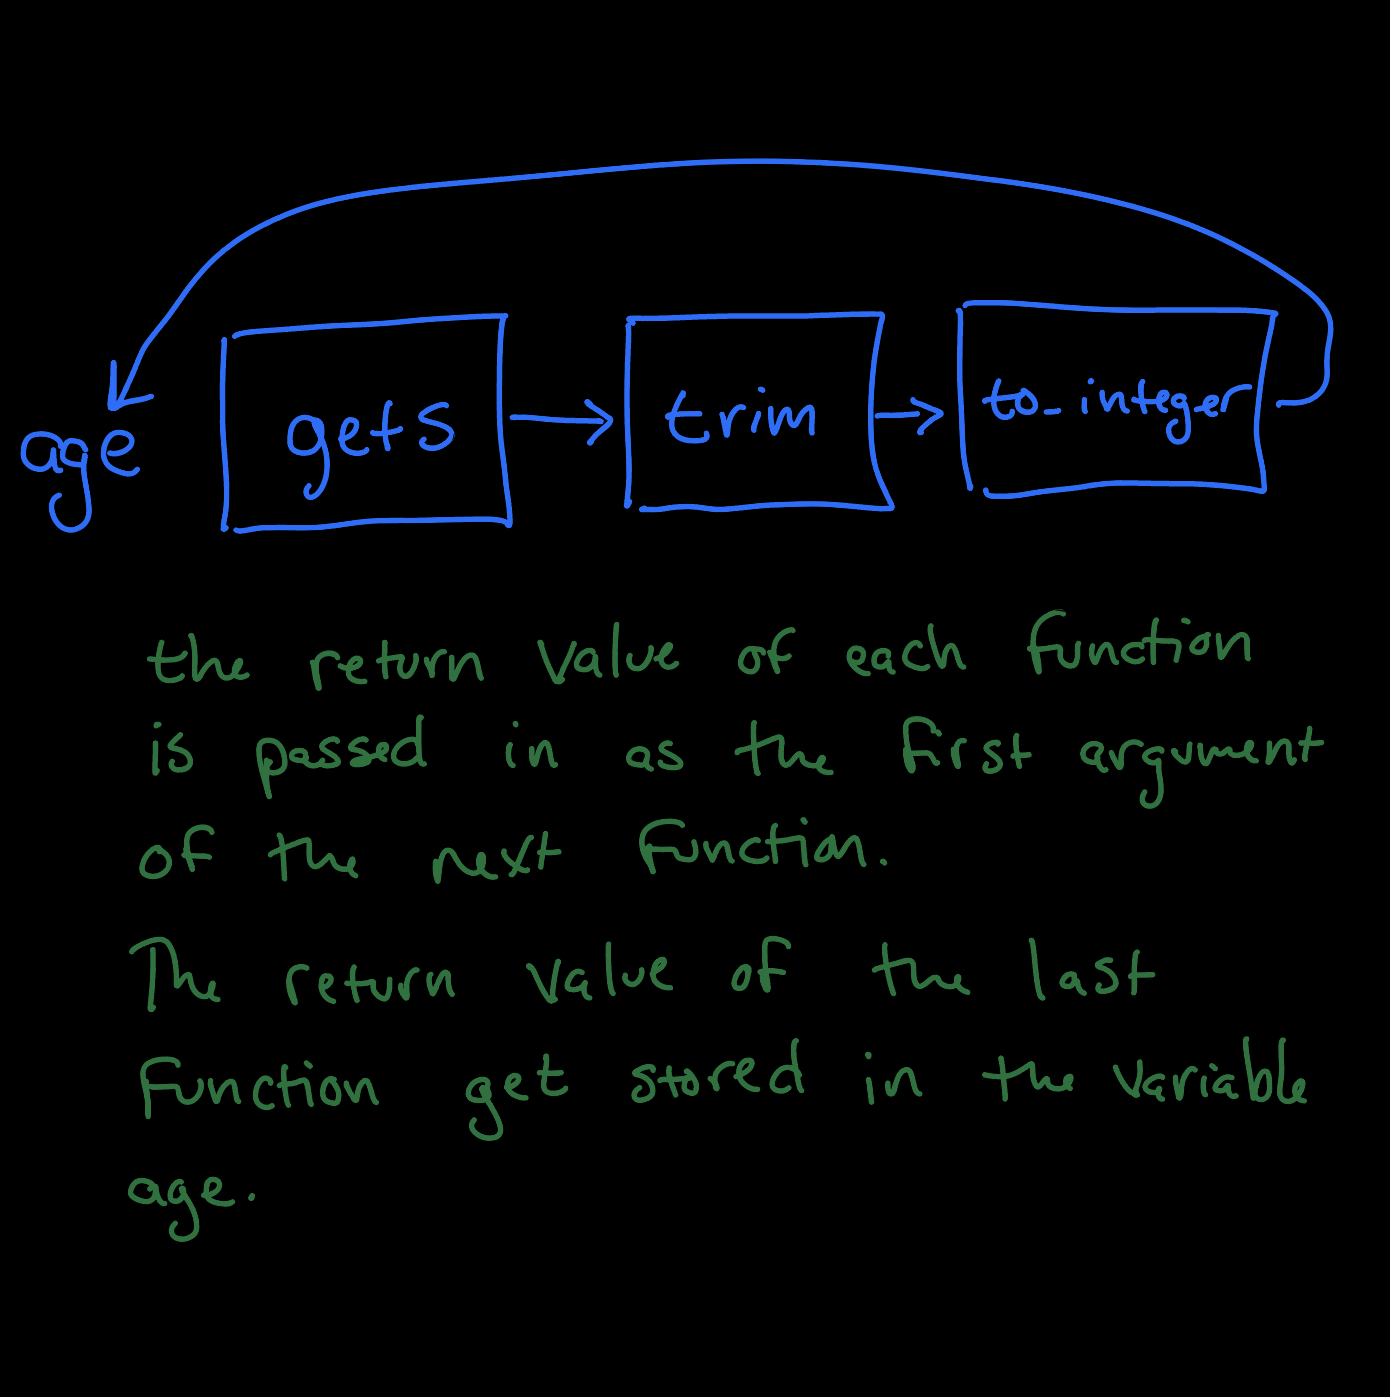 age gets trim to_integer
the return value of each function
is passed in as the first argument
of the next function.
The return value of the last
function get stored in the variable
age.